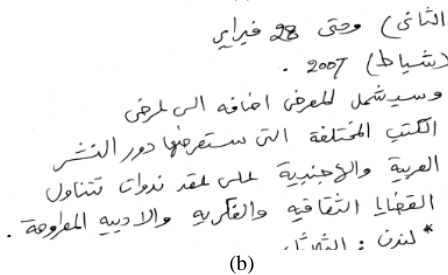 الثانى) وحتى 28 فبراير
(شباط) 2007 .
وسيشمل المعرض اضافه الى عرض
الكتب المختلفة التى ستعرضها دور النشر
العربية والاجنبية على عقد ندوات تتناول
القضايا الثقافيه والفكريه والادبيه المطروحة .
* لندن :
(b)